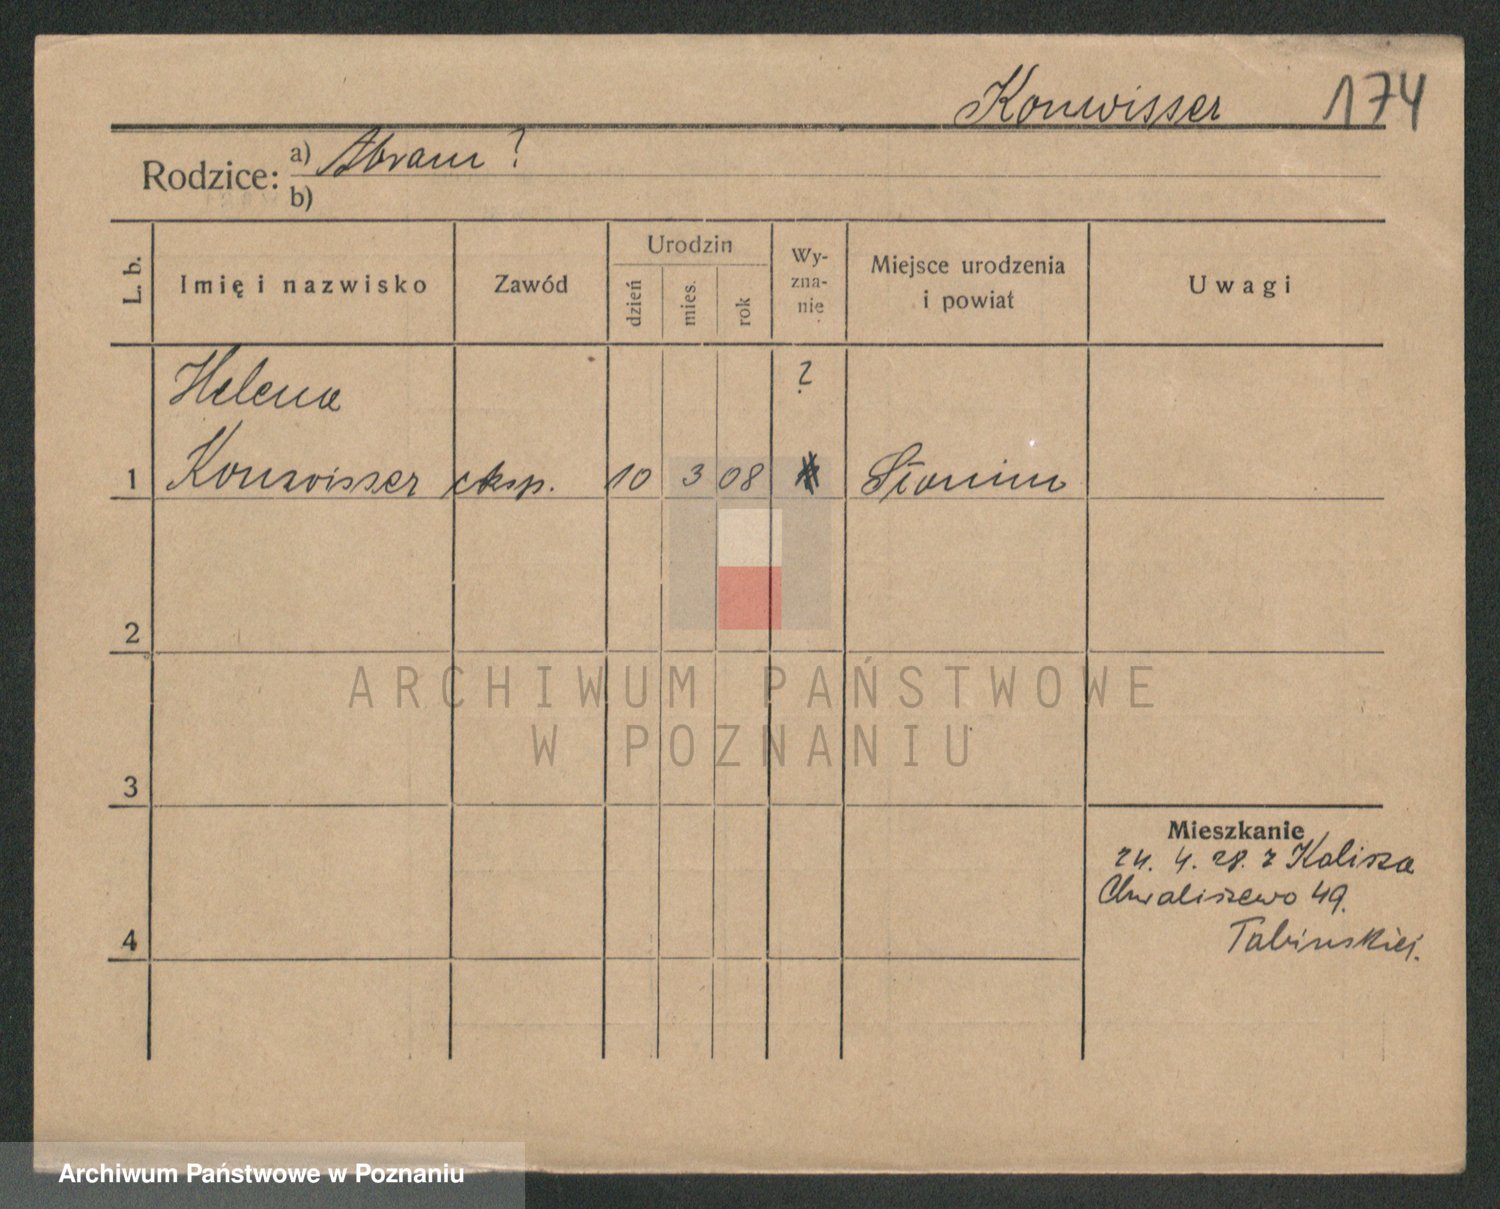 Konwisser 174
Rodzice: a) Abram ?
b)
L. b. Imię i nazwisko Zawód Urodzin dzień mies. rok Wy-zna-nie Miejsce urodzenia i powiat Uwagi
Helena ?
1 Konwisser eksp. 10 3 08 Słonim
2
3
4
Mieszkanie
24. 4. 28. z Kalisza
Chwaliszewo 49.
ARCHIWUM PAŃSTWOWE
W POZNANIU
Archiwum Państwowe w Poznaniu